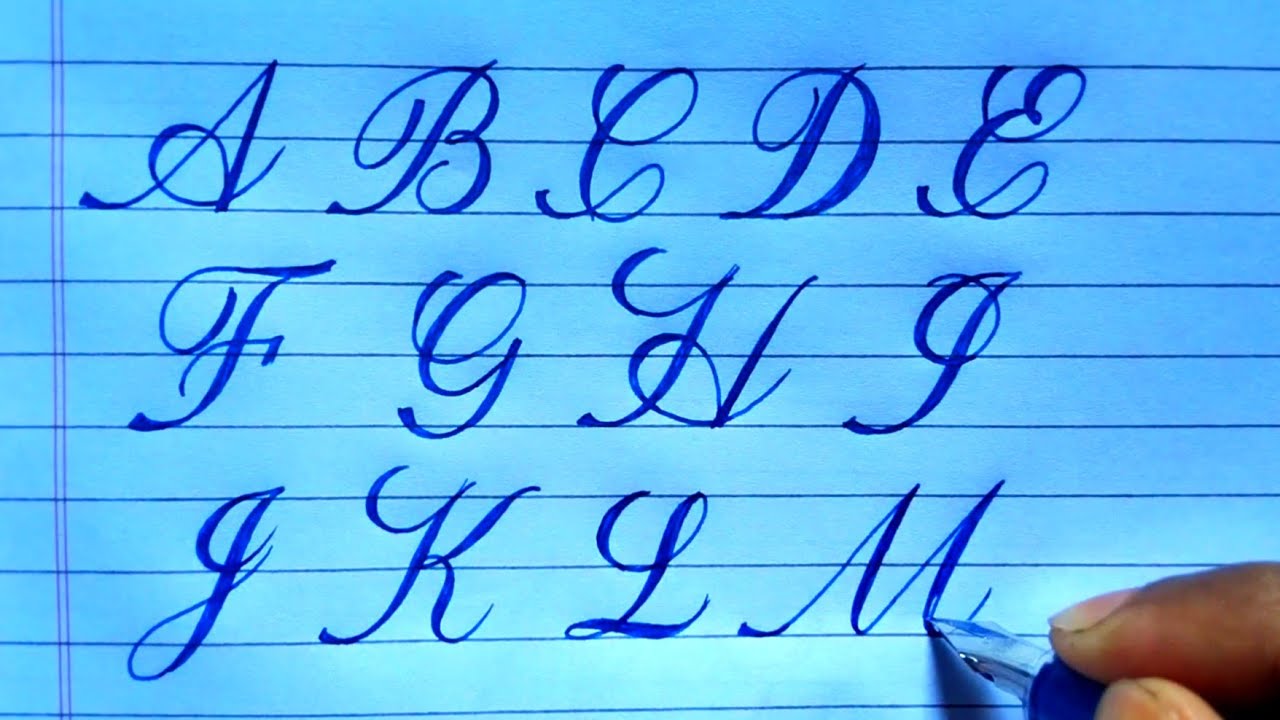 A B C D E
F G H I
J K L M